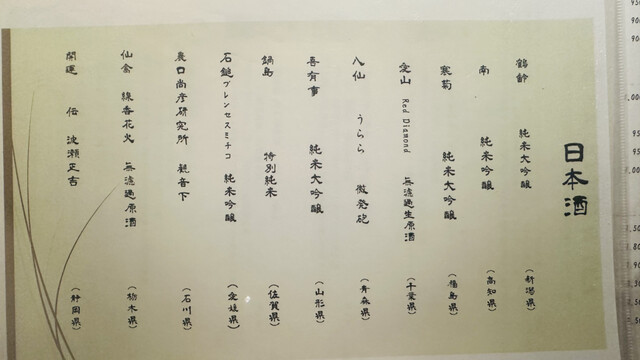 日本酒
鶴齢 純米大吟醸 (新潟県)
南 純米吟醸 (高知県)
寒菊 純米大吟醸 (福島県)
愛山 Red Diamond 無濾過生原酒 (千葉県)
八仙 うらら 微発砲 (青森県)
吾有事 純米大吟醸 (山形県)
鍋島 特別純米 (佐賀県)
石鎚プレンセスミチコ 純米吟醸 (愛媛県)
農口尚彦研究所 観音下 (石川県)
仙禽 線香花火 無濾過原酒 (栃木県)
開運 伝 波瀬正吉 (静岡県)